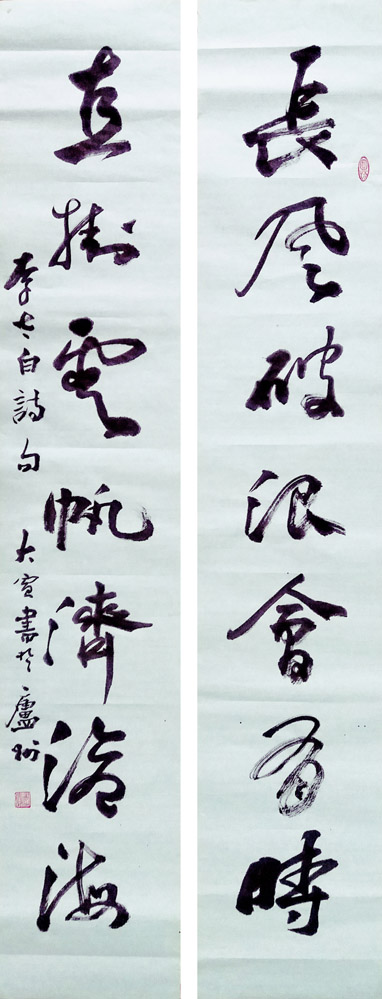 長風破浪會有時
直掛雲帆濟滄海
李太白詩句 大寬書於廬州